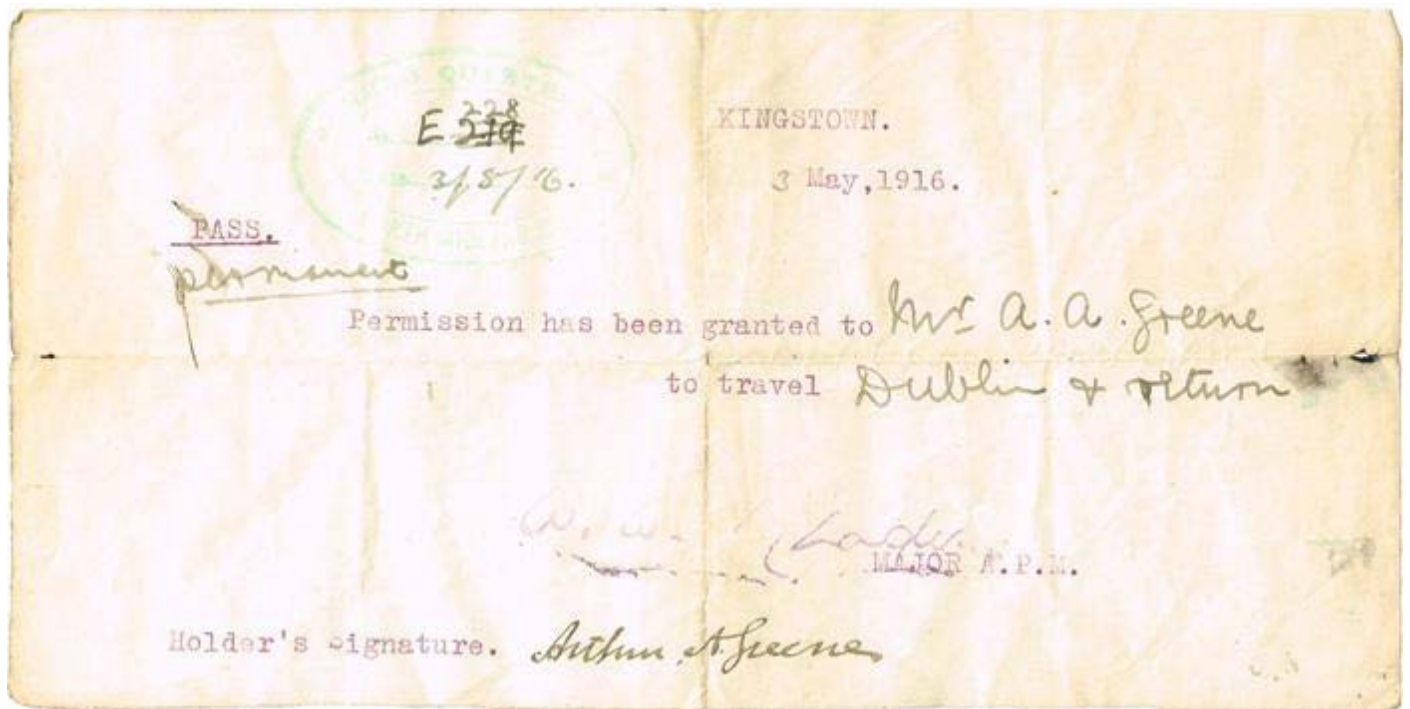 E 228
219
KINGSTOWN.
3/5/16.
3 May,1916.
PASS.
permanent
Permission has been granted to Mr A. A. Greene
to travel Dublin & return
MAJOR A.P.M.
Holder's Signature. Arthur A. Greene